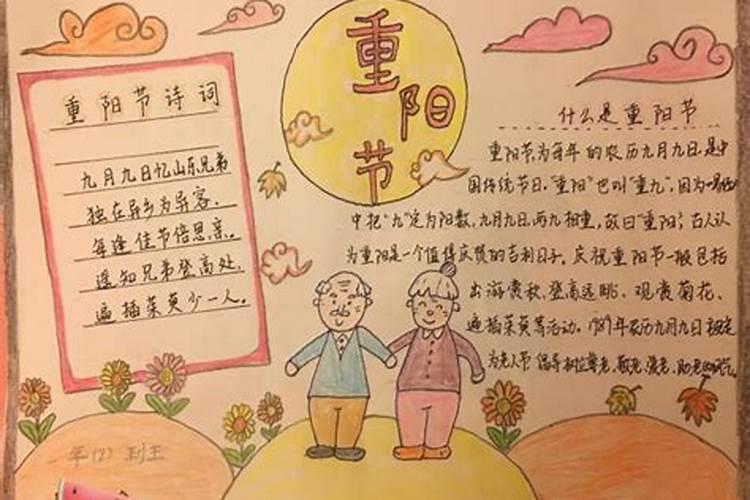 重阳节
重阳节诗词
九月九日忆山东兄弟
独在异乡为异客，
每逢佳节倍思亲。
遥知兄弟登高处，
遍插茱萸少一人。
什么是重阳节
重阳节，为每年的农历九月九日，是中
国传统节日。“重阳”也叫“重九”，因为《易经》
中把“九”定为阳数，九月九日，两九相重，故曰“重阳”；古人认
为重阳是一个值得庆贺的吉利日子。庆祝重阳节一般包括
出游赏秋、登高远眺、观赏菊花、
遍插茱萸等活动。1989年农历九月九日被定
为老人节，倡导树立尊老、敬老、爱老、助老的
一年(2)